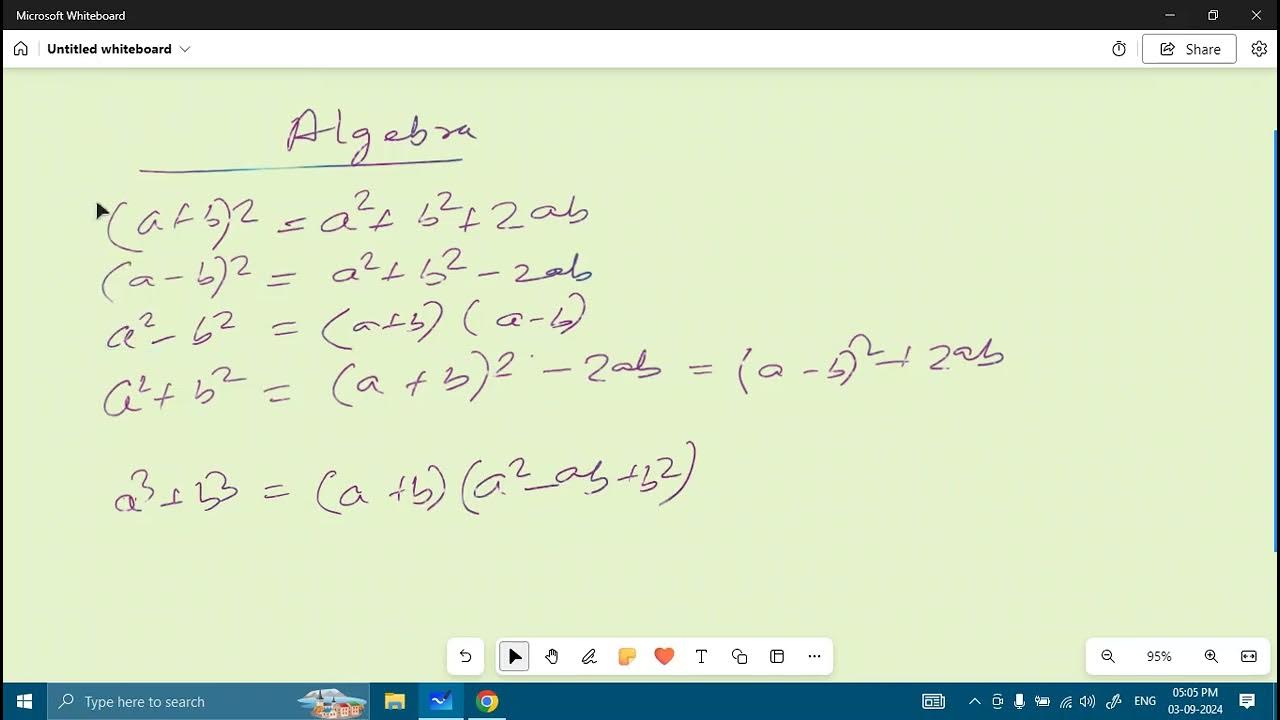 Microsoft Whiteboard
Untitled whiteboard
Share
Algebra
(a+b)² = a² + b² + 2ab
(a-b)² = a² + b² - 2ab
a² - b² = (a+b) (a-b)
a² + b² = (a+b)² - 2ab = (a-b)² + 2ab
a³ + b³ = (a+b) (a² - ab + b²)
95%
Type here to search
ENG
05:05 PM
03-09-2024